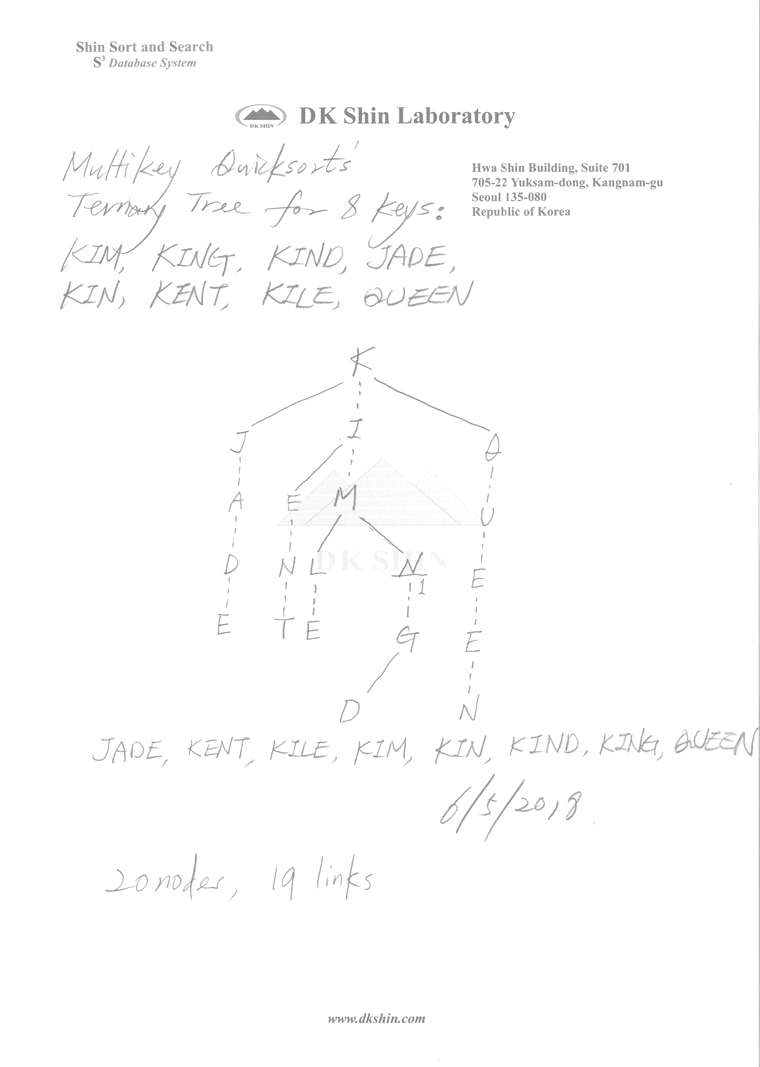 Shin Sort and Search
S³ Database System
DK SHIN
DK Shin Laboratory
Hwa Shin Building, Suite 701
705-22 Yuksam-dong, Kangnam-gu
Seoul 135-080
Republic of Korea
Multikey Quicksorts'
Ternary Tree for 8 keys:
KIM, KING, KIND, JADE,
KIN, KENT, KILE, QUEEN
K
J I Q
A E M U
DK SHIN
D N L N E
1
E T E G E
D N
JADE, KENT, KILE, KIM, KIN, KIND, KING, QUEEN
6/5/2018
20 nodes, 19 links
www.dkshin.com